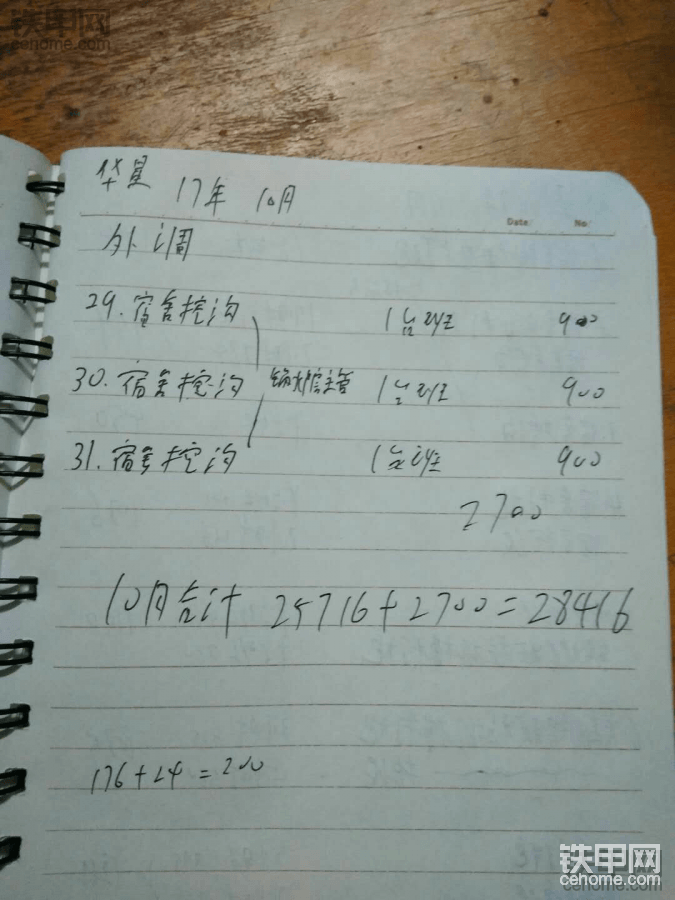 铁甲网
cehome.com
华星 17年 10月
Date: No:
外调
29.宿舍挖沟 1台班 900
30.宿舍挖沟 1台班 900
31.宿舍挖沟 1台班 900
2700
10月合计 25716+2700=28416
176+24=200
铁甲网
cehome.com